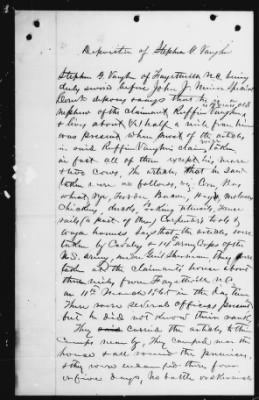 Deposition of Stephen G. Vaughn
Stephen G. Vaughn of Fayetteville N.C. being
duly sworn before John J. Minor Special
Comr deposes & says that he is
nephew of the claimant Ruffin Vaughn,
& lives about half a mile from him
was present when most of the articles
in said Ruffin Vaughn's claim were taken
in fact all of them except his mare
& two cows. The articles that he said
taken were as follows, viz. Corn, Hay
wheat, Rye, Bacon,
Chickens, ducks,
rails (a part of them) Carpenter's tools by
houses. Says that the articles were
taken by Cavalry & 14th Army Corps of the
U.S. Army, under Genl Sherman. They were
taken at the claimants house about
three miles from Fayetteville N.C.
on 11th March 1865 in the day time
There were several officers present
but he did not know their rank.
They carried the articles to their
camps near by, They camped near the
house & all round the premises,
& they were encamped there four
or five days, No battle or skirmish